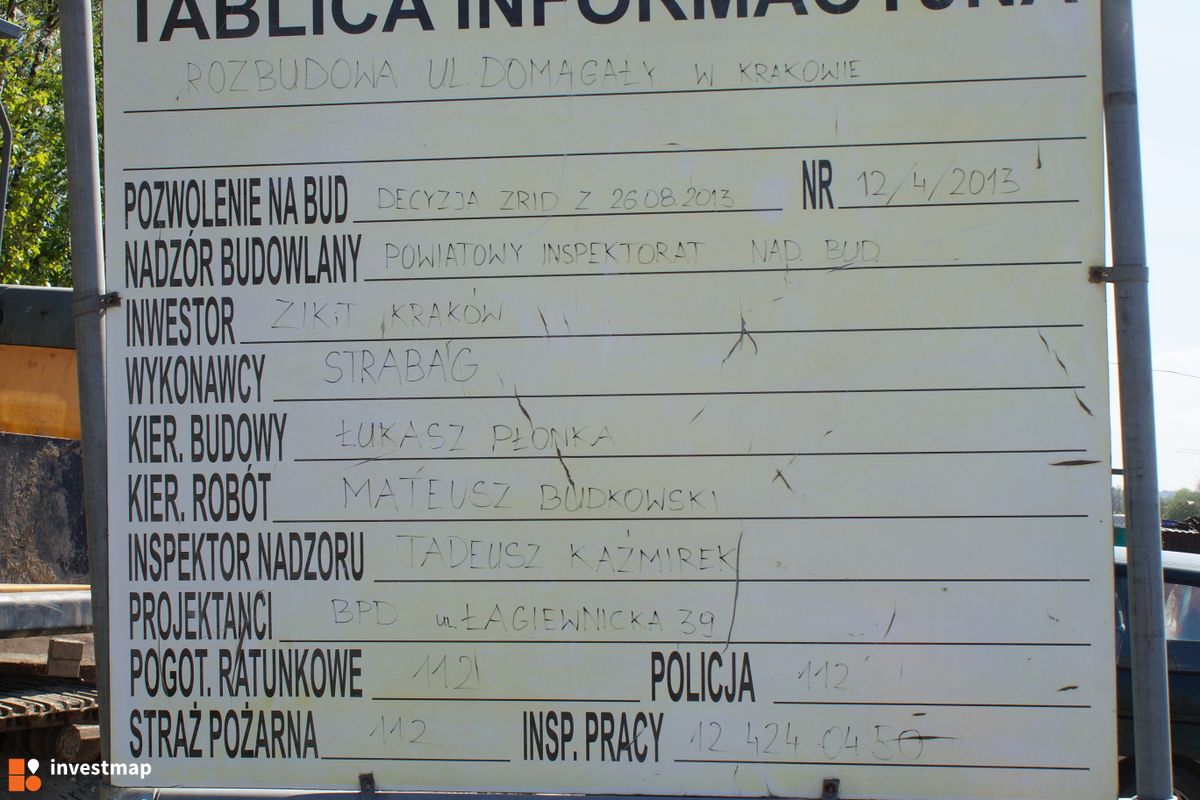 TABLICA INFORMACYJNA
ROZBUDOWA UL. DOMAGAŁY W KRAKOWIE
POZWOLENIE NA BUD DECYZJA ZRID Z 26.08.2013 NR 12/4/2013
NADZÓR BUDOWLANY POWIATOWY INSPEKTORAT NAD. BUD.
INWESTOR ZIKiT KRAKÓW
WYKONAWCY STRABAG
KIER. BUDOWY ŁUKASZ PŁONKA
KIER. ROBÓT MATEUSZ BUDKOWSKI
INSPEKTOR NADZORU TADEUSZ KAŹMIREK
PROJEKTANCI BPD ul. ŁAGIEWNICKA 39
POGOT. RATUNKOWE 112 POLICJA 112
STRAŻ POŻARNA 112 INSP. PRACY 12 424 04 50
investmap